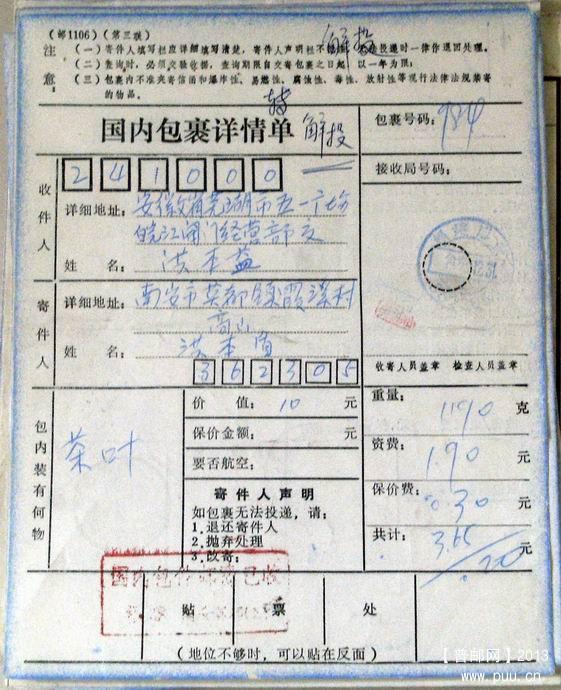 (邮1106) (第三联)
注意:
(一) 寄件人填写栏应详细填写清楚,寄件人声明栏不
投递时一律作退回处理。
(二) 查询时,必须交验收据,查询期限自交寄包裹之日起,以一年为限;
(三) 包裹内不准夹寄信函和爆炸性、易燃性、腐蚀性、毒性、放射性等现行法律法规禁寄的物品。
国内包裹详情单
转
解投
包裹号码: 984
接收局号码:
241000
收件人
详细地址: 安徽省芜湖市五一广场
皖江闸门经营部交
姓 名: 洪本益
寄件人
详细地址: 南安市英都镇霞溪村
高山
姓 名: 洪本
362305
收寄人员盖章 检查人员盖章
包内装有何物
茶叶
价 值: 10 元
保价金额: 元
要否航空:
寄件人声明
如包裹无法投递,请:
1.退还寄件人
2.抛弃处理
3.改寄:
重量: 1190 克
资费: 1.90 元
保价费: 0.30 元
共计: 3.65 元
国内包件 已收
贴 票 处
(地位不够时,可以贴在反面)
【普邮网】2013
www.puu.cn